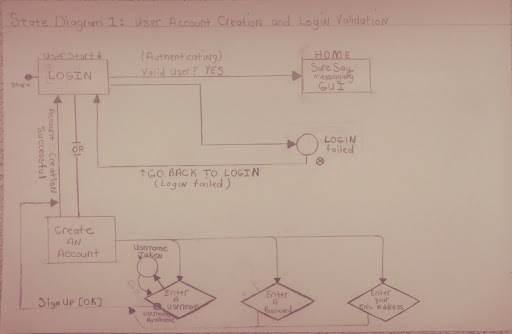 State Diagram 1: User Account Creation and Login Validation
User Start
LOGIN
Start
(Authenticating)
Valid User? YES
HOME
Sure Say
messaging
GUI
LOGIN
Failed
↑ GO BACK TO LOGIN
(Login Failed)
Account Creation
Successful
OR
Create
AN
Account
Username
TAKEN
Enter
A
Username
Username
Available
Enter
A
Password
Enter
your
Address
Sign Up [OK]